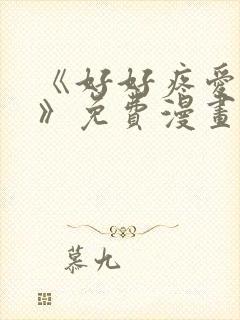 《好好疼爱
》免費漫畫
慕九